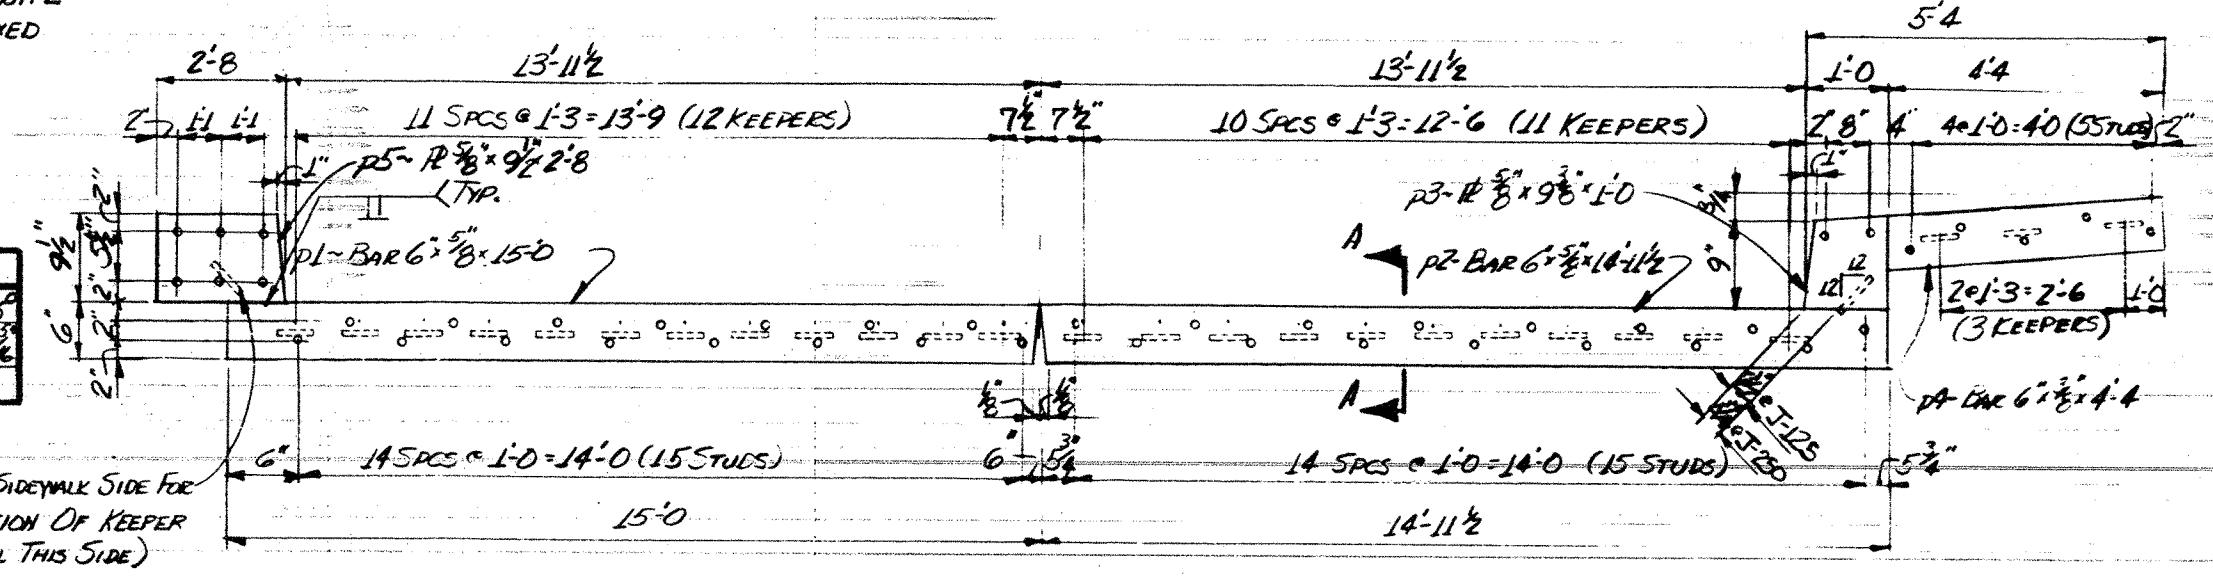 XED
5'-4
2'-8
13'-11½
13'-11½
1'-0
4'-4
2" 1'-1 1'-1
11 SPCS @ 1'-3 = 13'-9 (12 KEEPERS)
7½" 7½"
10 SPCS @ 1'-3 = 12'-6 (11 KEEPERS)
2" 8" 4"
4@1'-0=4'-0 (5 STUDS) 2"
1"
p5~ PL ⅝" x 9½" x 2'-8
(TYP.
1"
p3~ PL ⅝" x 9⅜" x 1'-0
2"
5½"
2"
9½"
p1~ BAR 6" x ⅝" x 15'-0
A
p2- BAR 6" x ⅝" x 14'-11½
9"
12
12
2@1'-3=2'-6 1'-0
(3 KEEPERS)
6"
2"
2"
⅛" ⅛"
A
@ J-125
@ J-250
p4- BAR 6" x ⅝" x 4'-4
6"
14 SPCS @ 1'-0 = 14'-0 (15 STUDS)
6" 5¾"
14 SPCS @ 1'-0 = 14'-0 (15 STUDS)
5¾"
SIDEWALK SIDE FOR
TION OF KEEPER
L THIS SIDE)
15'-0
14'-11½